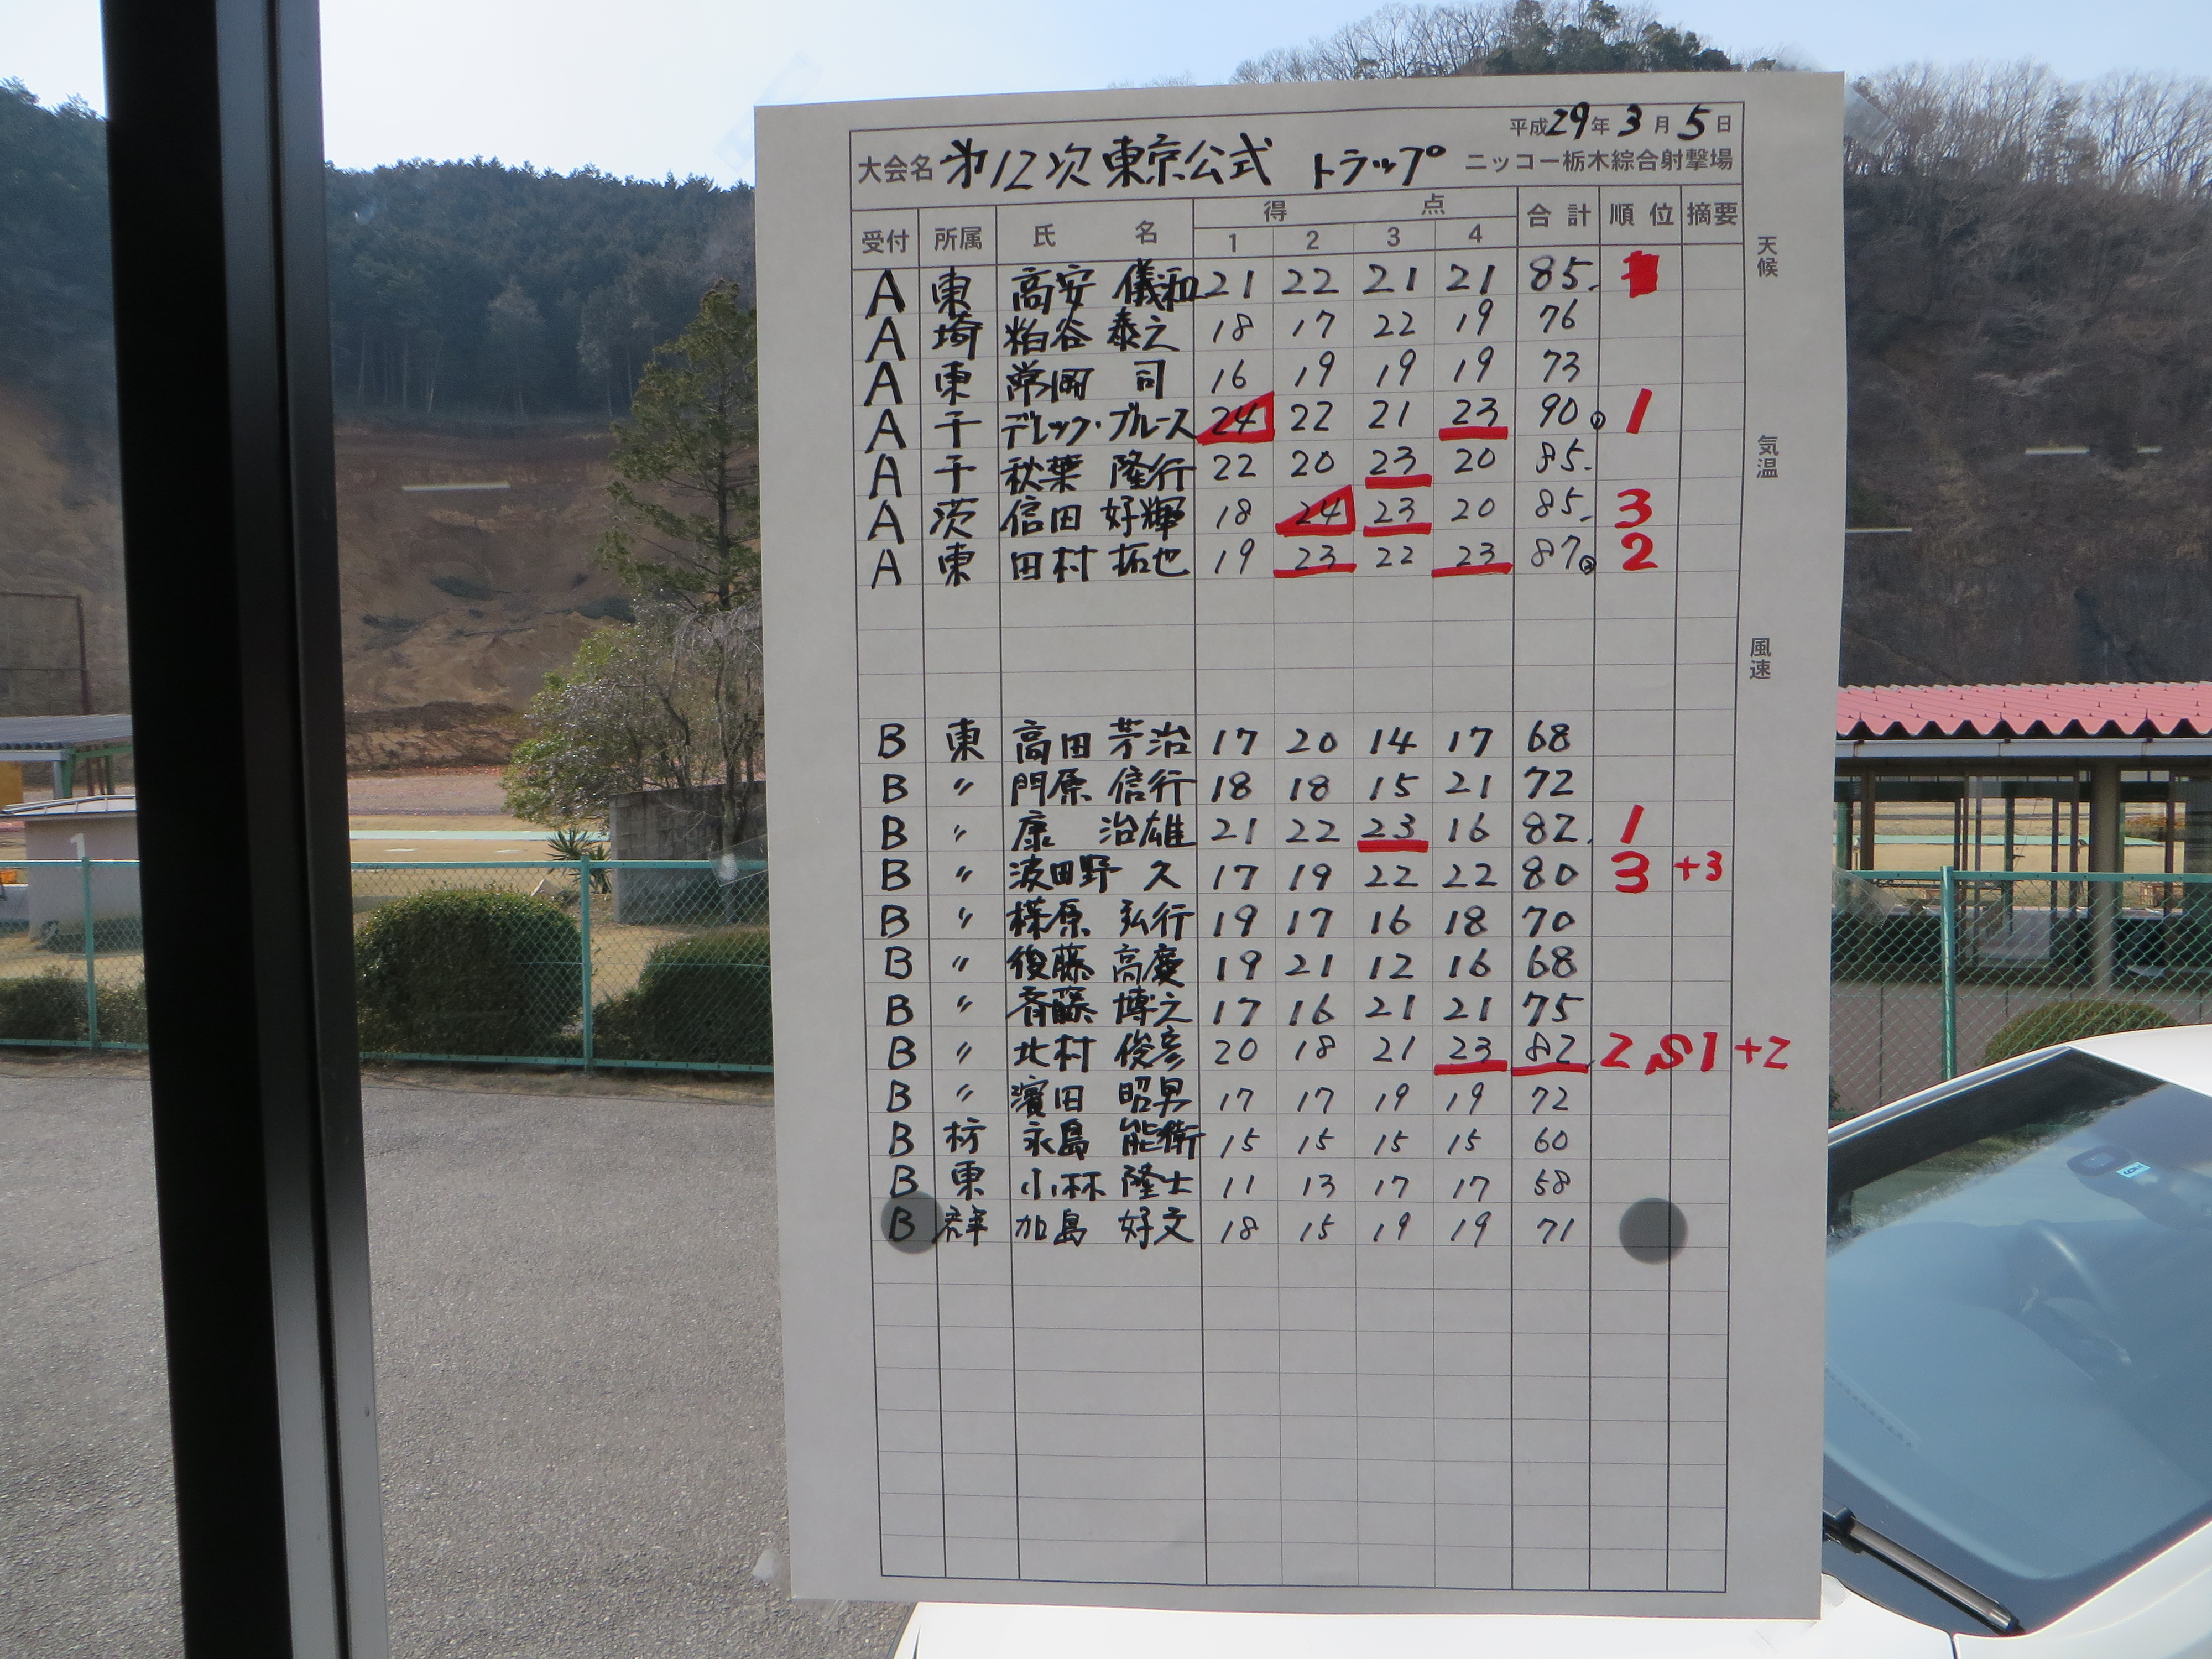 平成29年3月5日
大会名 第12次東京公式 トラップ ニッコー栃木綜合射撃場
受付 所属 氏名 得点 合計 順位 摘要
1 2 3 4
天候
気温
風速
A 東 高安 儀和 21 22 21 21 85.
A 埼 粕谷 泰之 18 17 22 19 76
A 東 常岡 司 16 19 19 19 73
A 千 デレック・ブルース 24 22 21 23 90 1
A 千 秋葉 隆行 22 20 23 20 85.
A 茨 信田 好輝 18 24 23 20 85. 3
A 東 田村 拓也 19 23 22 23 87② 2
B 東 高田 芳治 17 20 14 17 68
B 〃 門原 信行 18 18 15 21 72
B 〃 康 治雄 21 22 23 16 82. 1
B 〃 波田野 久 17 19 22 22 80 3 +3
B 〃 原 弘行 19 17 16 18 70
B 〃 後藤 高慶 19 21 12 16 68
B 〃 斉藤 博之 17 16 21 21 75
B 〃 北村 俊彦 20 18 21 23 82. 2 S1 +2
B 〃 濱田 昭男 17 17 19 19 72
B 栃 永島 能衛 15 15 15 15 60
B 東 小林 隆士 11 13 17 17 58
B 群 加島 好文 18 15 19 19 71
1